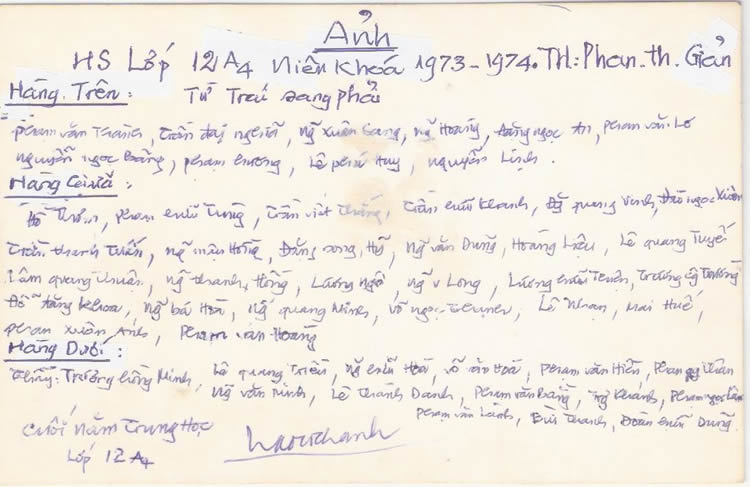 Ảnh
HS Lớp 12A4 Niên Khoá 1973-1974. TH: Phan. th. Giản
Hàng Trên: Từ Trái sang phải
Phạm văn Thành, Trần đại nghĩa, Ng xuân Sang, Ng Hoàng, Đặng ngọc An, Phạm văn Lê
nguyễn ngọc Bằng, phạm Chương, Lê phú Huy, nguyễn Lịnh.
Hàng Giữa:
Đỗ, Phạm hữu Trung, Trần viết Thắng, Trần hữu Khanh, quang Vinh, Đào ngọc Xuân
Trần thanh Tuấn, ng mậu Hồng, Đặng song Hỷ, Ng văn Dung, Hoàng Liệu, Lê quang Tuyết
Lâm quang Thuận, ng thanh Hồng, Lương ngô, ng v Long, Lương hữu, Trương
Đỗ đăng Khoa, Ng bá Hoà, Ng quang Minh, Võ ngọc, Lê Nhan, Mai Huế,
Phan Xuân Ánh, Phạm văn Hoàng
Hàng Dưới:
Thầy: Trương hồng Minh, Lê quang Triều, Ng hữu Hoà, Võ văn Hoá, Phạm văn Hiền, Phan
Ng văn Minh, Lê Thành Danh, Phạm văn Bằng, Khánh, Phạm ngọc
Phạm văn Lành, Bùi Thanh, Đoàn hữu Dung.
Cuối năm Trung Học
Lớp 12A4